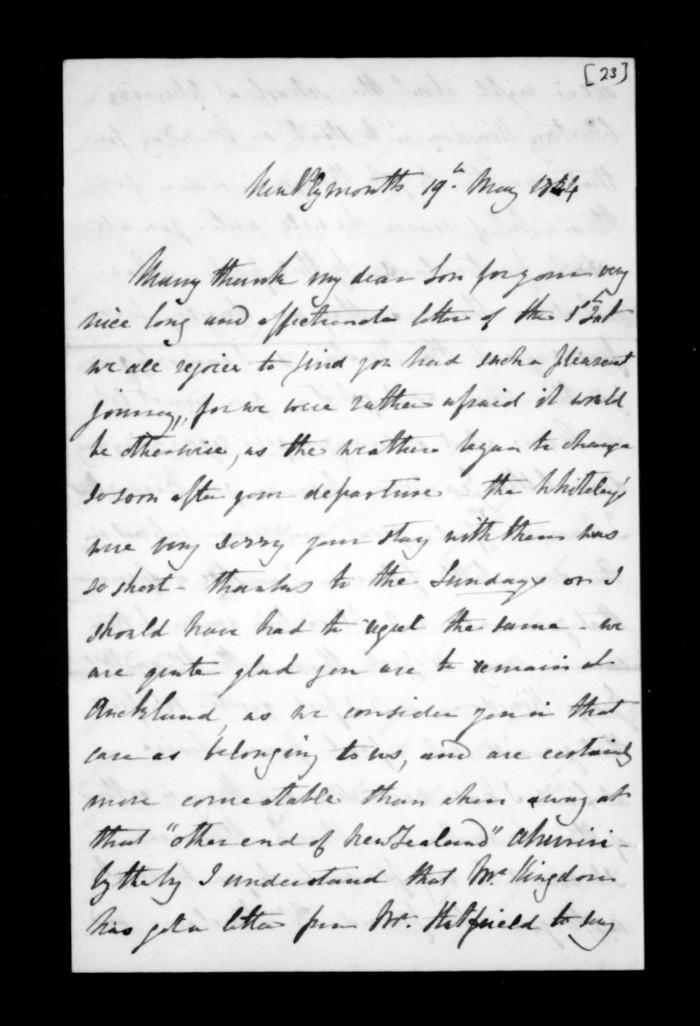 [23]
New Plymouth 19th May 1854
Many thanks my dear Son for your very
nice long and affectionate letter of the 1st Inst
we all rejoice to find you had such a pleasant
journey, for we were rather afraid it would
be otherwise, as the weather began to change
so soon after your departure the Whiteley's
were very sorry your stay with them was
so short - thanks to the Sundays or I
should have had to regret the same - we
are quite glad you are to remain at
Auckland, as we consider you in that
case as belonging to us, and are certainly
more comeatable than when away at
that "other end of New Zealand" Ahuriri -
by the by I understand that Mr. Kingdon
has got a letter from Mr. Hadfield to say